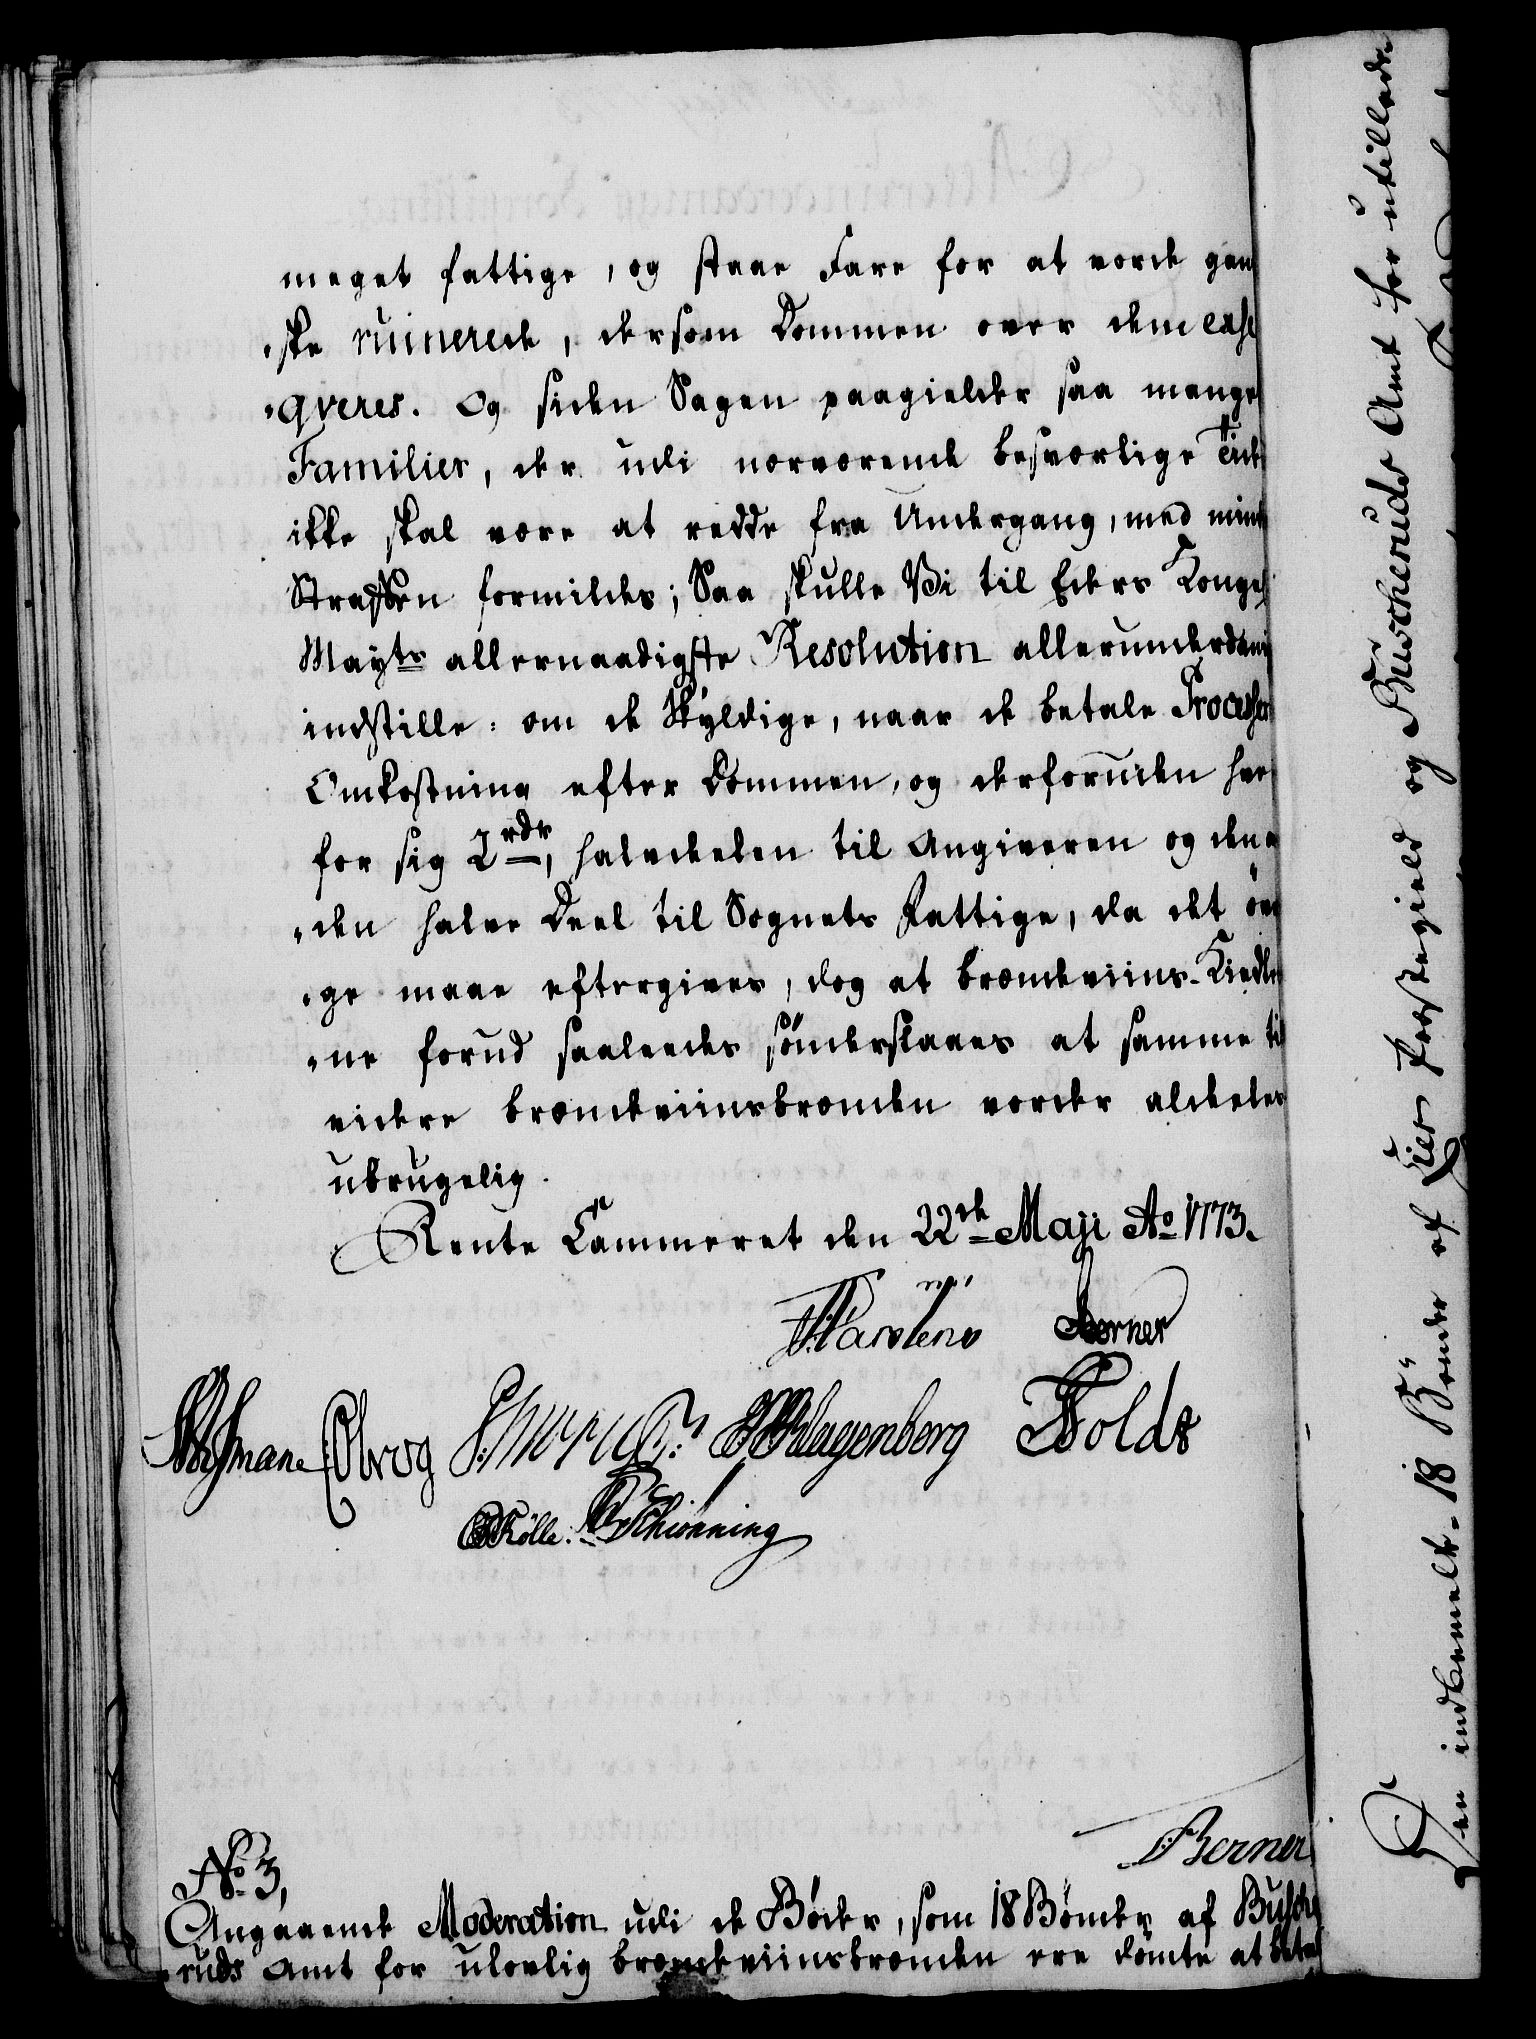 meget fattige, og staae Fare for at vorde gan
ske ruinerede, dersom Dommen over dem exse
qveres. Og siden Sagen paagielder saa mange
Familier, der udi nærværende besværlige Tiid
ikke skal være at redde fra Undergang, med mind
Straffen formildes; Saa skulle Vi til Eders Kongel
Mayts allernaadigste Resolution allerunderdanig
indstille: om de Skyldige, naar de betale Processens
Omkostning efter Dommen, og desforuden hver
for sig 2 rdr, halvdelen til Angiveren og den a
den halve Deel til Sognets Fattige, da det øv
ge maae eftergives, dog at brændeviins-Kiedle
ne forud saaledes sønderslaaes at samme til
videre brændeviinsbrænden vorder aldeles
ubrugelig.
Rente Cammeret den 22de Maji Ao 1773.
Berner
Obrog Klagenberg Folds
Kølle. Schiønning
Berner
No 3,
Angaaende Moderation udi de Bøder, som 18 Bønder af Busche
ruds Amt for ulovlig brændeviinsbrænden ere dømte at betal
Den indbemelte 18 Bønder af Lier Præstegield og Buscheruds Amt for utilladt